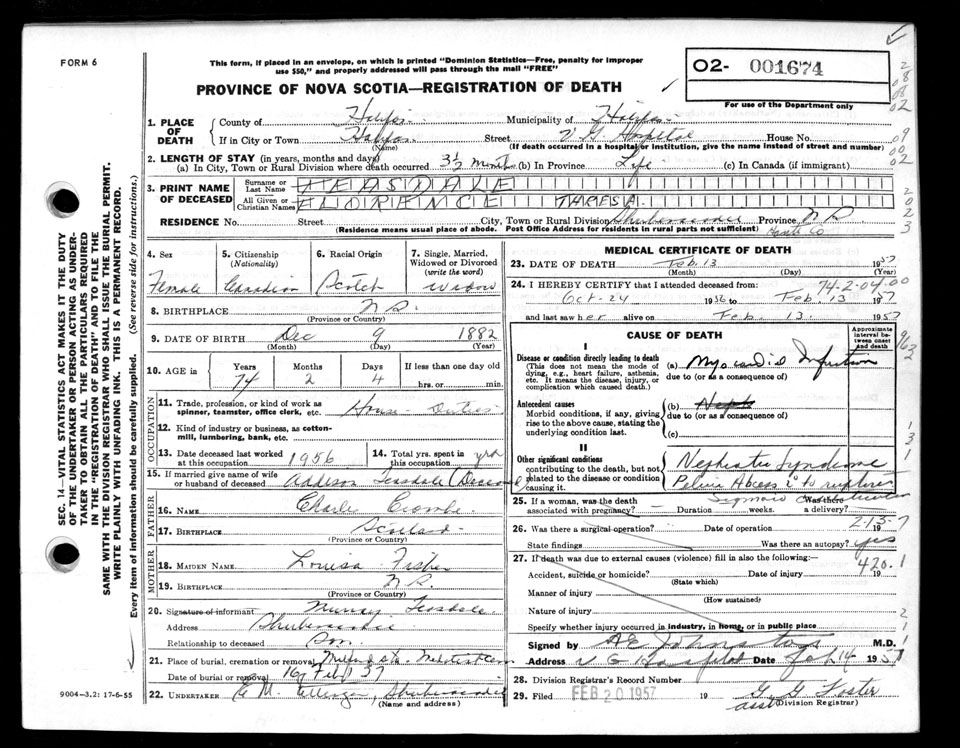 FORM 6
This form, if placed in an envelope, on which is printed "Dominion Statistics—Free, penalty for improper
use $50," and properly addressed will pass through the mail "FREE"
02- 001674
PROVINCE OF NOVA SCOTIA—REGISTRATION OF DEATH
For use of the Department only
1. PLACE OF DEATH
County of Halifax Municipality of Halifax
If in City or Town Halifax Street V. G. Hospital House No.
(Name) (If death occurred in a hospital or institution, give the name instead of street and number)
2. LENGTH OF STAY (in years, months and days)
(a) In City, Town or Rural Division where death occurred 3½ months (b) In Province Life (c) In Canada (if immigrant)
3. PRINT NAME OF DECEASED
Surname or Last Name TEASDALE
All Given or Christian Names FLORENCE THERESA
RESIDENCE No. Street City, Town or Rural Division Shubenacadie Province N.S.
(Residence means usual place of abode. Post Office Address for residents in rural parts not sufficient) Hants Co
4. Sex Female
5. Citizenship (Nationality) Canadian
6. Racial Origin Scotch
7. Single, Married, Widowed or Divorced (write the word) Widow
8. BIRTHPLACE N.S.
(Province or Country)
9. DATE OF BIRTH Dec 9 1882
(Month) (Day) (Year)
10. AGE in Years 74 Months 2 Days 4 If less than one day old hrs. or min.
OCCUPATION
11. Trade, profession, or kind of work as spinner, teamster, office clerk, etc. House Duties
12. Kind of industry or business, as cotton-mill, lumbering, bank, etc.
13. Date deceased last worked at this occupation 1956
14. Total yrs. spent in this occupation yrs
15. If married give name of wife or husband of deceased Addison Teasdale (Deceased
FATHER
16. NAME Charle
17. BIRTHPLACE Scotland
(Province or Country)
MOTHER
18. MAIDEN NAME Louisa Fisher
19. BIRTHPLACE N.S.
(Province or Country)
20. Signature of informant Murray Teasdale
Address Shubenacadie
Relationship to deceased Son
21. Place of burial, cremation or removal
Date of burial or removal 16 Feb 57
22. UNDERTAKER E. M. Shubenacadie
(Name and address)
MEDICAL CERTIFICATE OF DEATH
23. DATE OF DEATH Feb. 13 1957
(Month) (Day) (Year)
24. I HEREBY CERTIFY that I attended deceased from: 74-2-04.00
Oct-24 1956 to Feb 13 1957
and last saw her alive on Feb. 13 1957
CAUSE OF DEATH
Approximate interval between onset and death
I
Disease or condition directly leading to death
(This does not mean the mode of dying, e.g., heart failure, asthenia, etc. It means the disease, injury, or complication which caused death.)
(a) Myocardial Infarction
due to (or as a consequence of)
Antecedent causes
Morbid conditions, if any, giving rise to the above cause, stating the underlying condition last.
(b) Neph
due to (or as a consequence of)
(c)
II
Other significant conditions
contributing to the death, but not related to the disease or condition causing it.
Nephrotic Syndrome
Pelvic Abcess 2° to ruptured
Sigmoid
25. If a woman, was the death associated with pregnancy? Duration weeks. Was there a delivery?
26. Was there a surgical operation? Date of operation 19
State findings Was there an autopsy? yes
27. If death was due to external causes (violence) fill in also the following:—
Accident, suicide or homicide? Date of injury 19
(State which)
420.1
Manner of injury
(How sustained)
Nature of injury
Specify whether injury occurred in industry, in home, or in public place
Signed by Johnston M.D.
Address V G Hospital Date Feb. 14 1957
28. Division Registrar's Record Number
29. Filed FEB 20 1957 19 G. G. Foster
asst Division Registrar)
SEC. 14—VITAL STATISTICS ACT MAKES IT THE DUTY
OF THE UNDERTAKER OR PERSON ACTING AS UNDER-
TAKER TO OBTAIN ALL THE PARTICULARS REQUIRED
IN THE "REGISTRATION OF DEATH" AND TO FILE THE
SAME WITH THE DIVISION REGISTRAR WHO SHALL ISSUE THE BURIAL PERMIT.
WRITE PLAINLY WITH UNFADING INK. THIS IS A PERMANENT RECORD.
Every item of information should be carefully supplied. (See reverse side for instructions.)
9004-3,2: 17-6-55